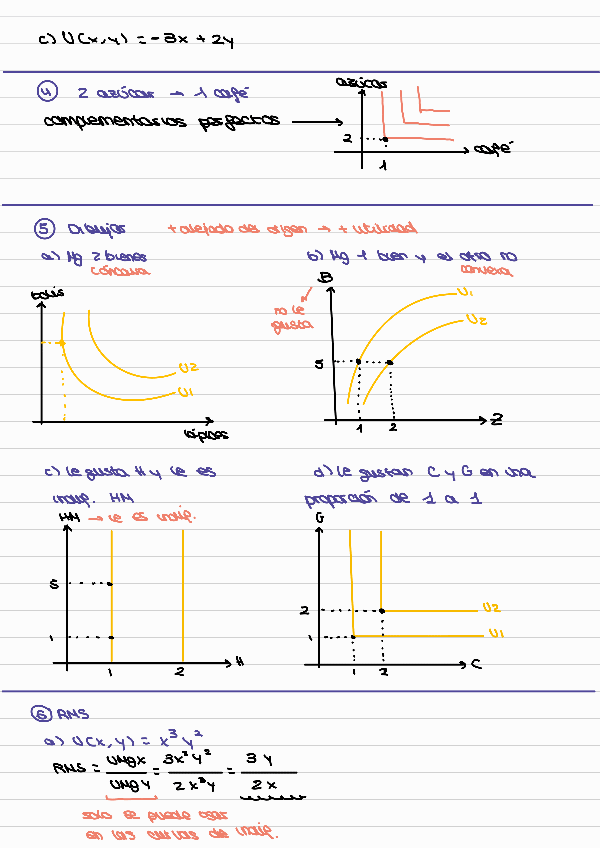 c) U(x,y) = -3x + 2y
4 2 azúcar → 1 café
complementarios perfectos →
azúcar
2
café
1
5 Dibujos + alejado del origen → + utilidad
a) Mg 2 bienes
cóncava
bolis
U2
U1
lápices
b) Mg 1 bien y el otro no
convexa
B
no le
gusta
U1
U2
5
1 2
Z
c) le gusta H y le es
indif. HM
HM → le es indif.
5
1
1 2 H
d) le gustan C y G en una
proporción de 1 a 1
G
2
1
U2
U1
1 2 C
6 RMS
a) U(x,y) = x³y²
RMS = UMgx / UMgy = 3x²y² / 2x³y = 3y / 2x
solo se puede usar
en las curvas de indif.